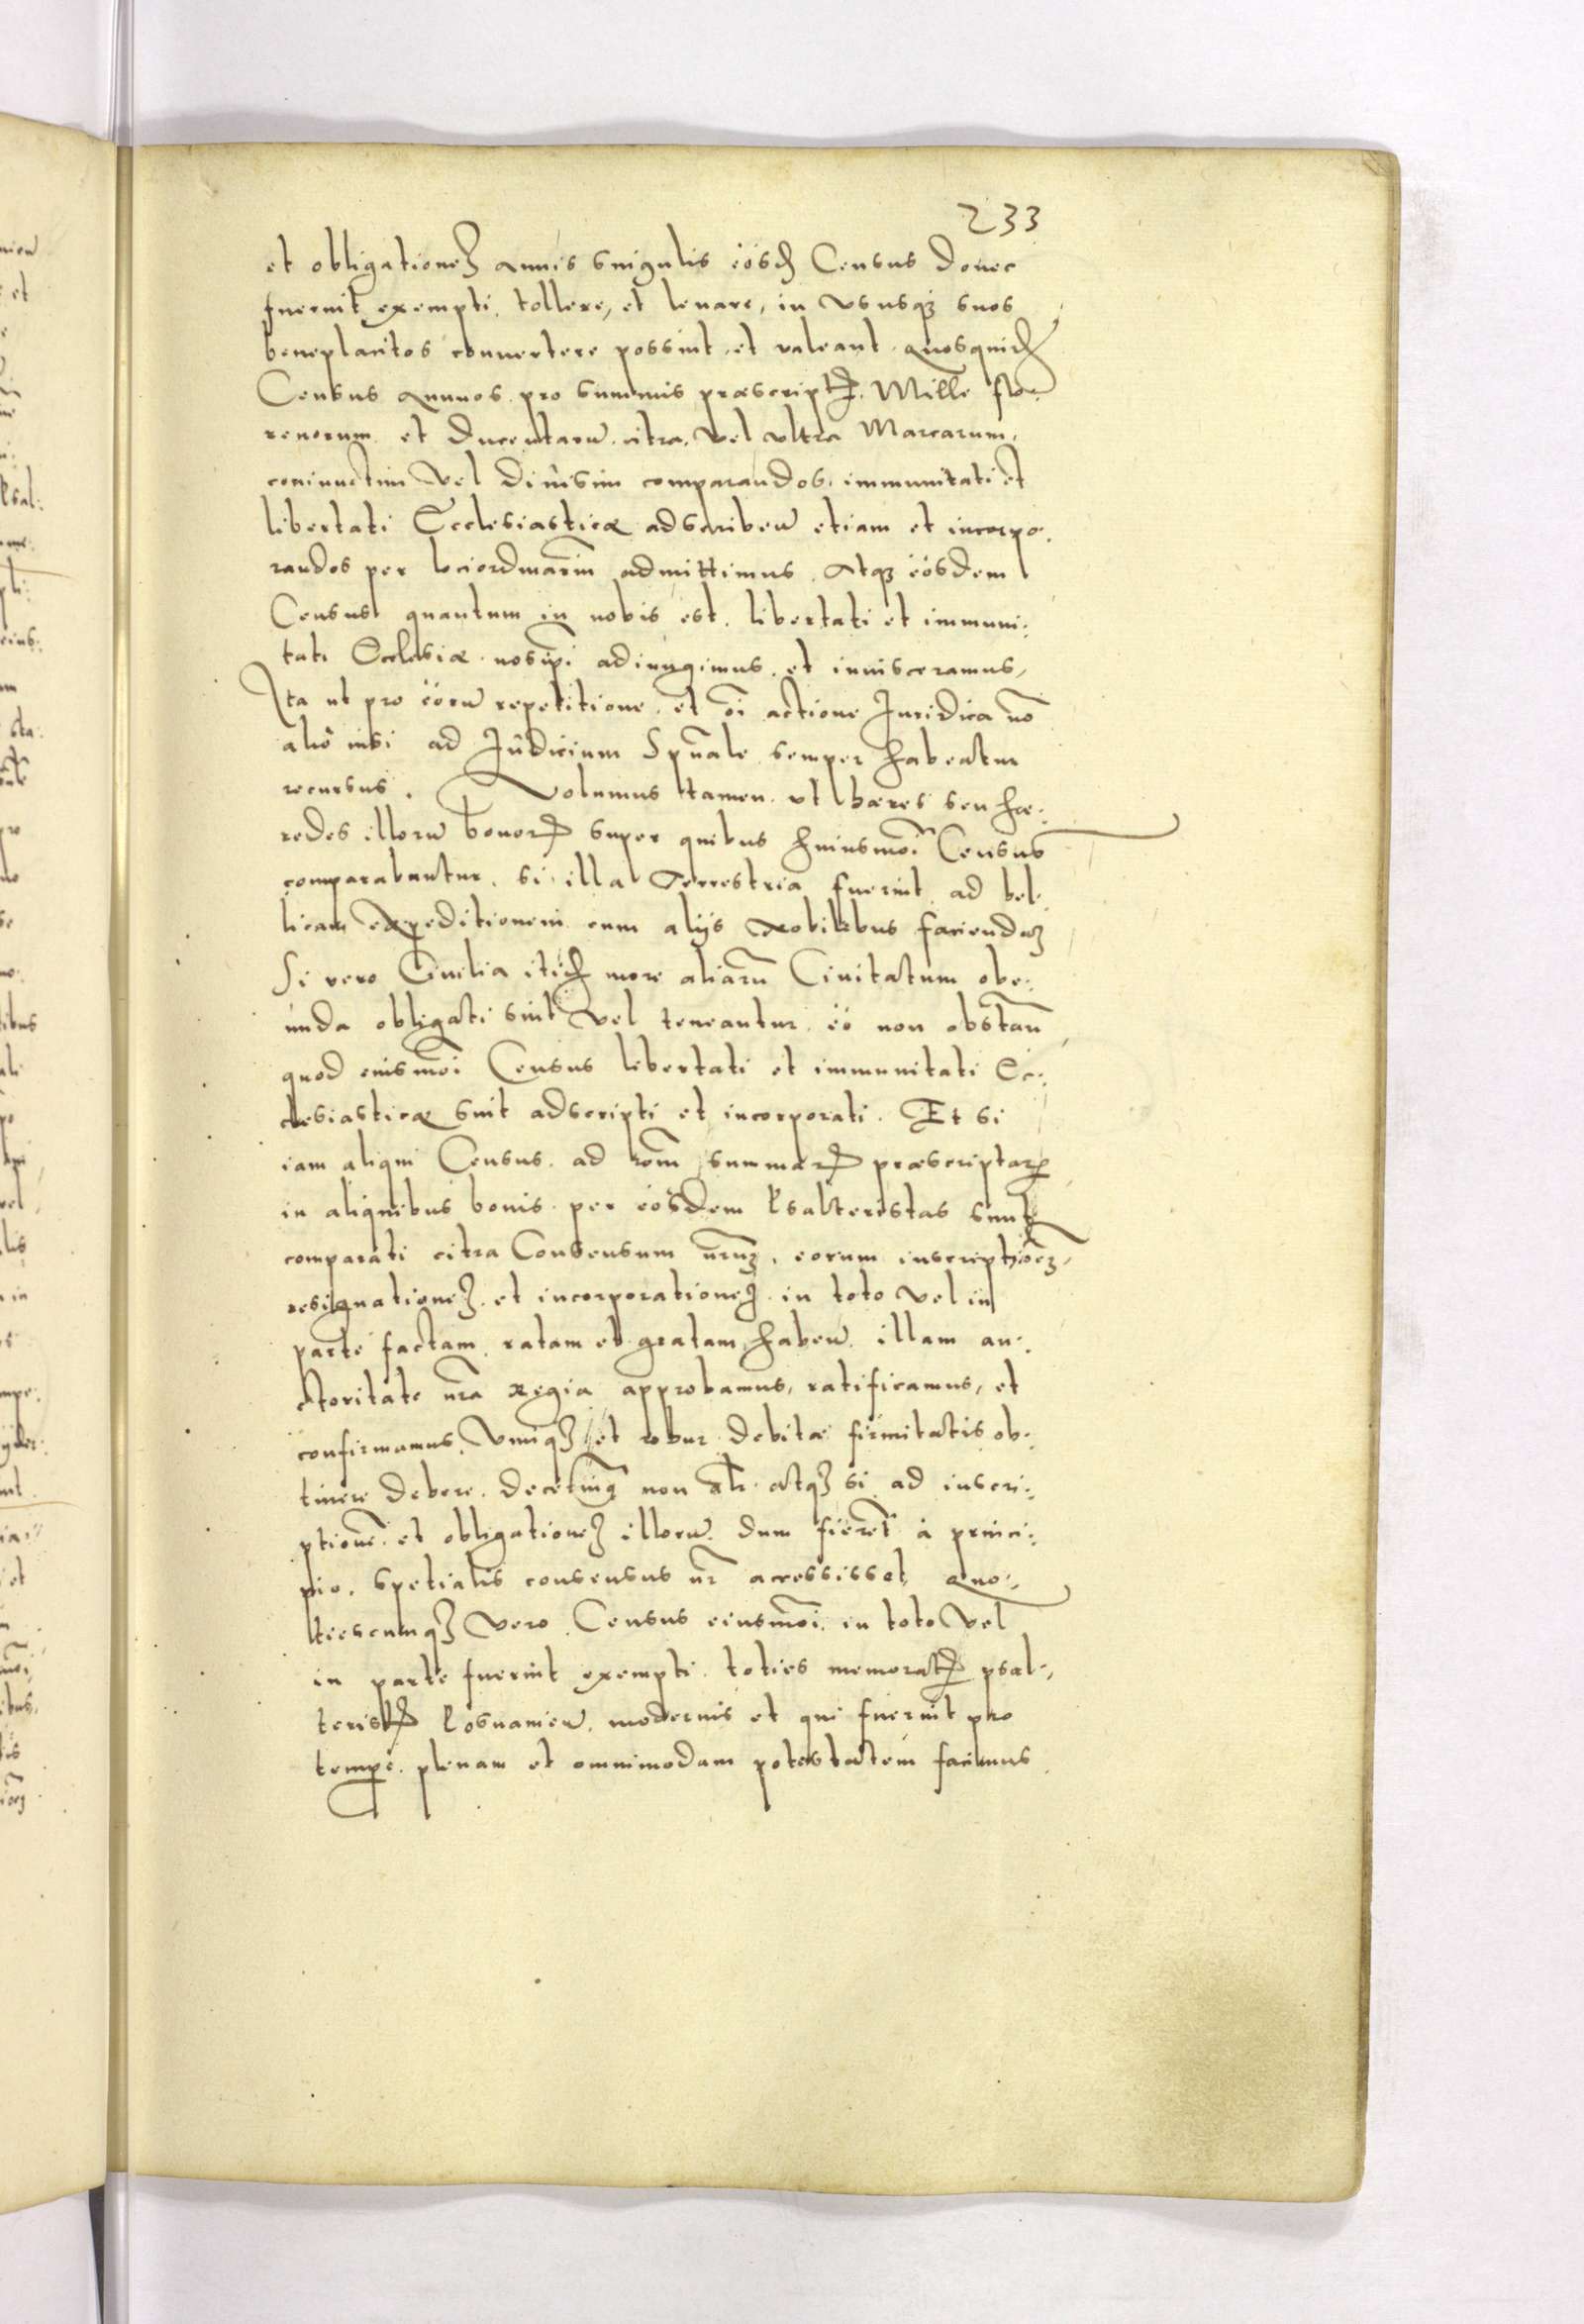 233
et obligationeʒ annis singulis eosd Census donec
fuerint exempti, tollere, et leuare, in Vsusqʒ suos
beneplacitos conuertere possint et valeant. Quosquid
Census annuos pro summis præscript. Mille flo-
renorum et Ducentaru citra, Vel vltra Marcarum,
coniunctim Vel Diuisim comparandos, immunitati et
libertati Ecclesiasticæ adscriben etiam et incorpo:
randos per lociordinarium admittimus. Atqʒ eosdem
Census quantum in nobis est, libertati et immuni:
tati Ecclesiæ adiungimus, et inuisceramus,
Ita ut pro eoru repetitione et oi actione Iuridica no
alio nisi ad Iudicium Spuale semper habeatur
recursus. Volumus tamen vt hæres seu hæ:
redes illoru bonor super quibus huiusmoi Census
comparabantur, si illa Terrestria fuerint, ad bel:
licam expeditionem cum alijs Nobilibus faciendaʒ
Si vero Ciuilia more aliaru Ciuitatum obe:
unda obligati sint Vel teneantur, eo non obstan
quod eiusmoi Census libertati et immunitati Ec:
clesiasticæ sint adscripti et incorporati. Et si
iam aliqui Census ad rom summar præscriptar
in aliquibus bonis per eosdem Psalteristas sunt
comparati citra Consensum nrumʒ, eorum inscriptioeʒ,
resignationeʒ et incorporationeʒ in toto Vel in
parte factam, ratam et gratam haben, illam au:
ctoritate nra Regia approbamus, ratificamus, et
confirmamus, Vimqʒ et robur Debitæ firmitatis ob:
tinere Debere, Decernimus non alr atqʒ si ad inscri:
ptione et obligationeʒ illoru dum fieret à princi:
pio, spetialis consensus nr accessisset. Quo:
tiescumqʒ Vero Census eiusmoi in toto Vel
in parte fuerint exempti, toties memorat psal:
terist Posnanien, modernis et qui fuerint pro
tempe, plenam et omnimodam potestatem facimus